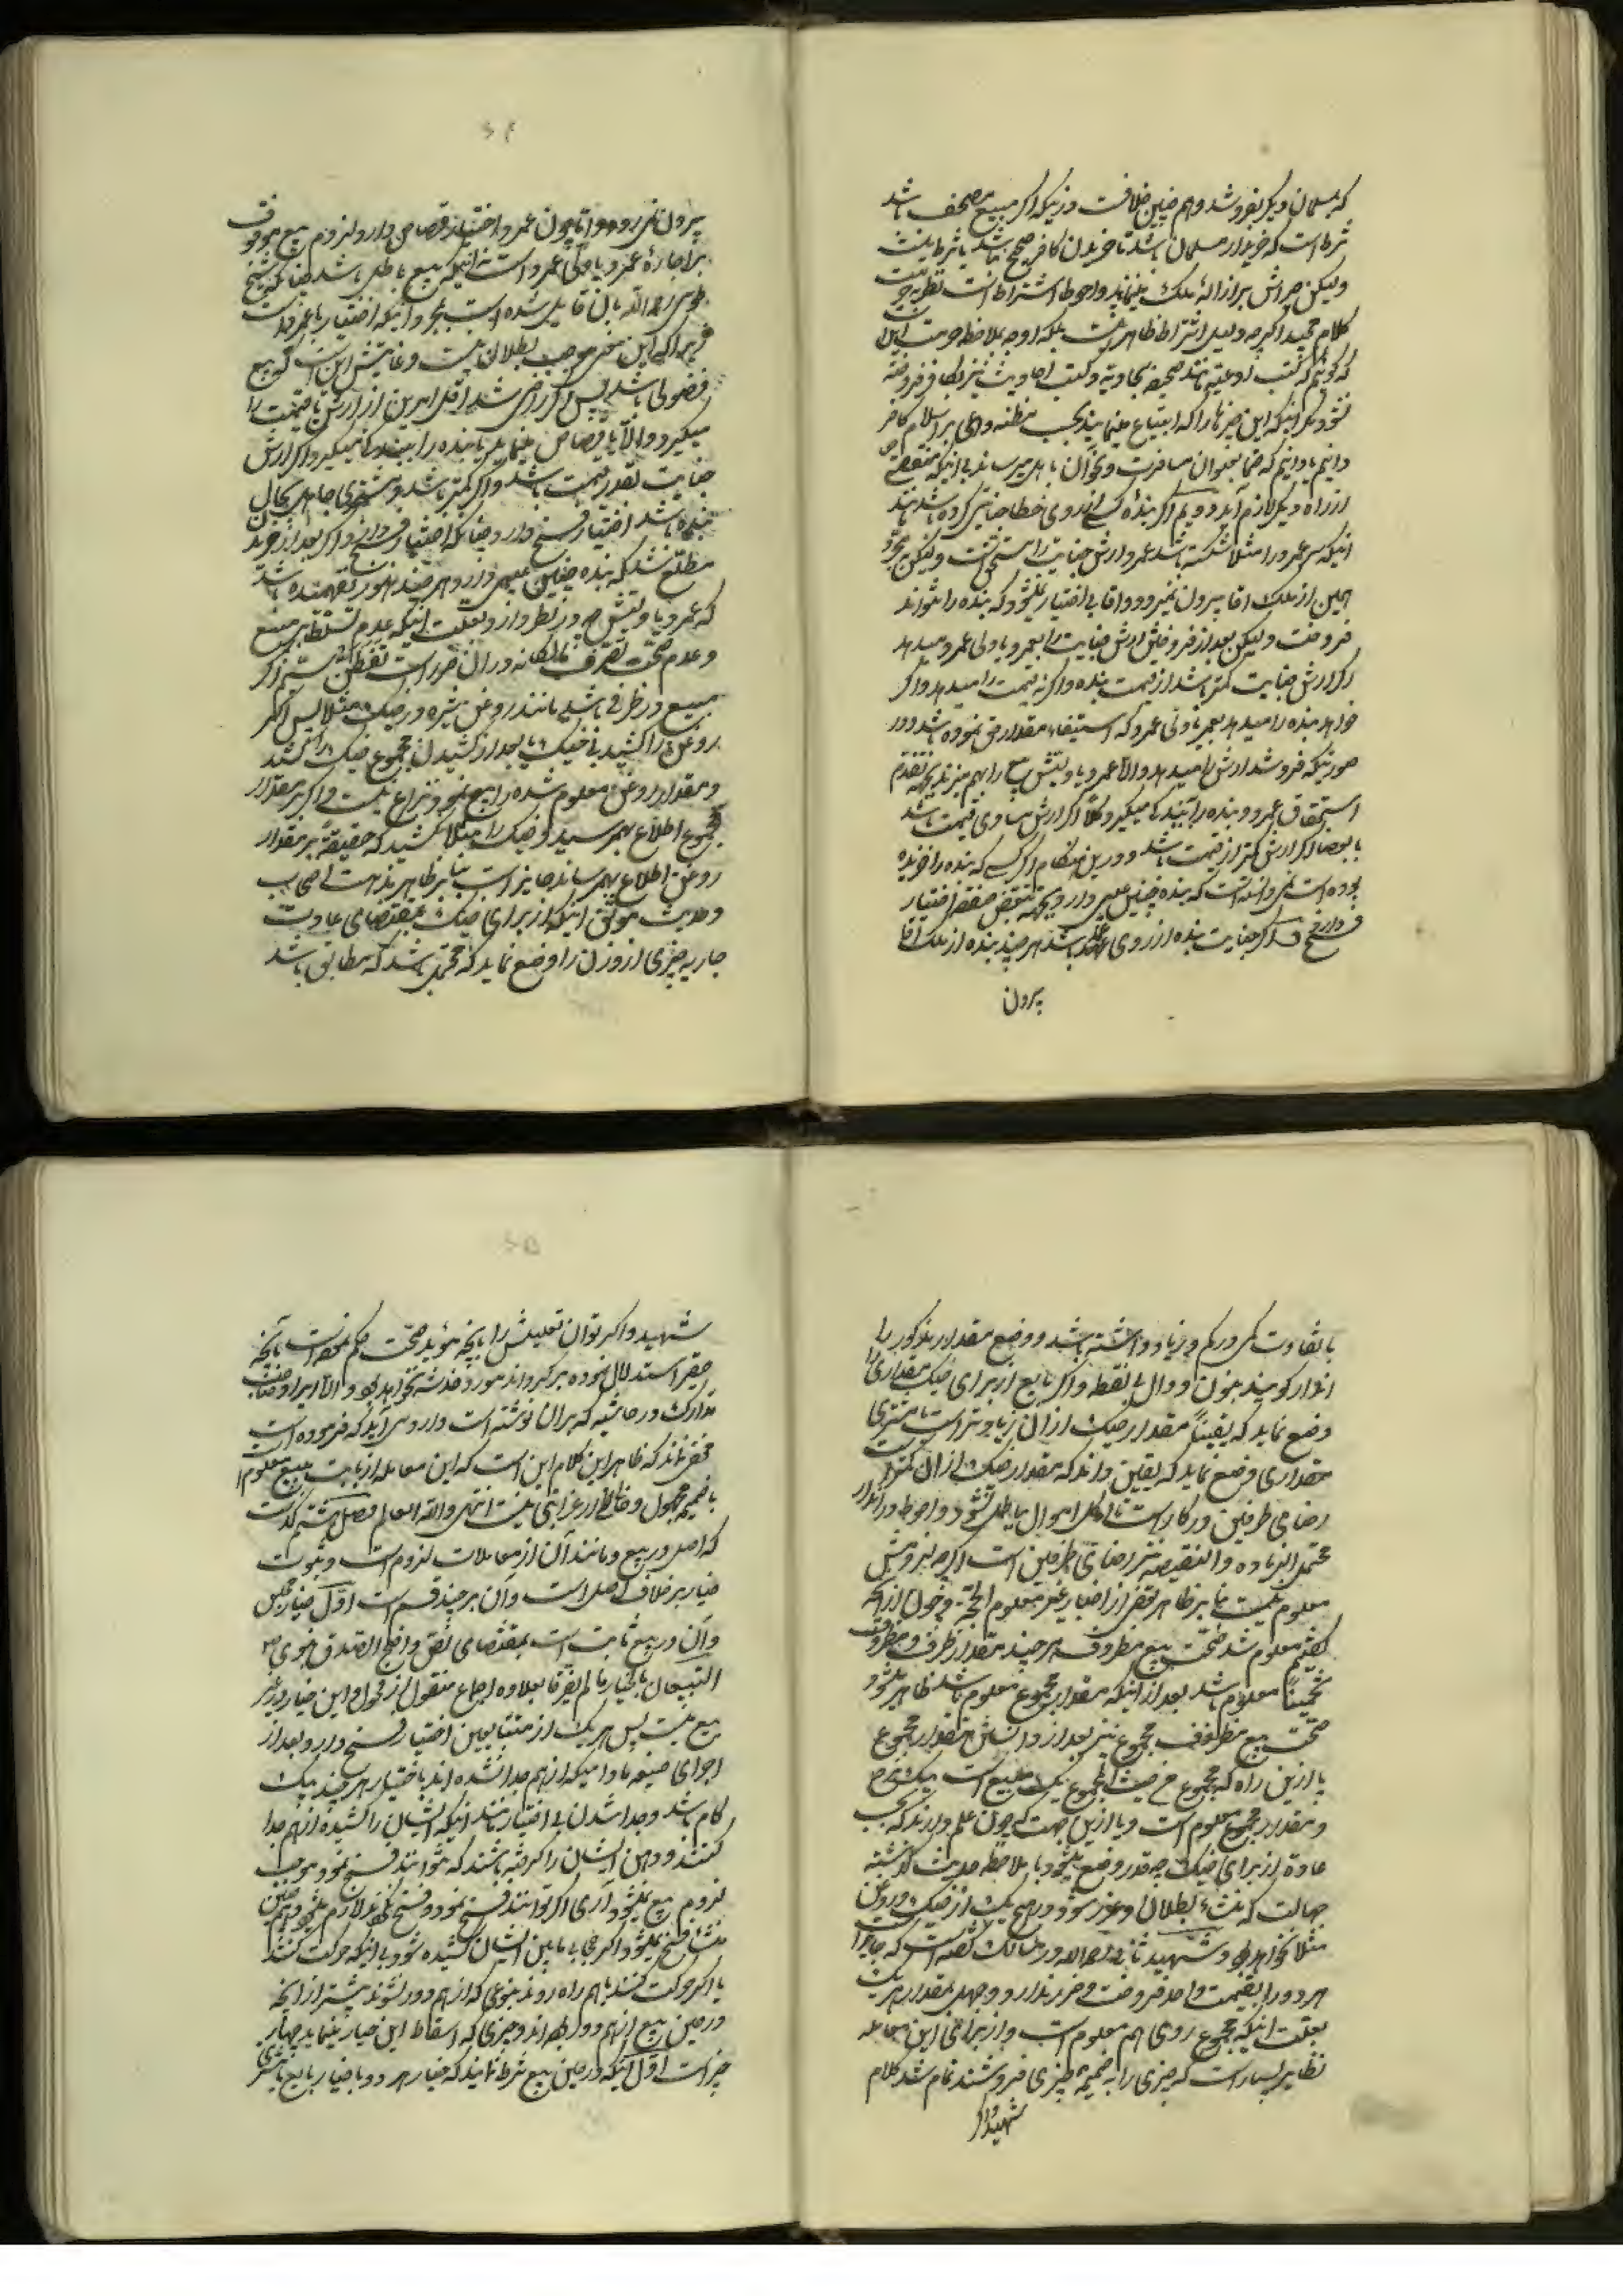 که بمسلمان دیگر بفروشد و هم چنین خلافست در اینکه اگر مبیع مصحف باشد
شرط است که خریدار مسلمان باشد تا خریدن کافر صحیح نباشد یا شرط نیست
ولیکن جبرش بر ازاله ملک مینمایند و احوط اشتراط است نظر بحرمت
کلام مجید اگرچه دلیل اشتراط ظاهر نیست بلکه اوجه بملاحظه حرمت این
که گوئیم که کتب ادعیه مانند صحیفه سجادیه و کتب احادیث نیز بکافر فروخته
نشود مگر اینکه این چیزها را که ابتیاع مینماید بحسب مظنه داعی بر اسلام کافر
دانیم یا دانیم که بعنوان مسافرت و نحو آن باهلش میرساند بی اینکه منقصتی
از راه دیگر لازم آید دویم اگر بنده کسی از روی خطا جنایتی کرده باشد مانند
اینکه سر عمرو را مثلا شکسته باشد عمرو ارش جنایت را مستحق است ولیکن بمجرد
همین از ملک آقا بیرون نمیرود و آقا بی اختیار نمیشود که بنده را نتواند
فروخت ولیکن بعد از فروختن ارش جنایت را بعمرو یا ولی عمرو میدهد
اگر ارش جنایت کمتر باشد از قیمت بنده و اگرنه قیمت را میدهد و اگر
خواهد بنده را میدهد بعمرو یا ولی عمرو که استیفاء مقدار حق نموده باشد و در
صورتیکه فروشد ارش را میدهد والا عمرو یا ولیش بیع را بهم میزند بجهة تقدم
استحقاق عمرو و بنده را ببندگی میگیرد کلا اگر ارش مساوی قیمت باشد
یا بعضا اگر ارش کمتر از قیمت باشد و در این هنگام اگر کسی که بنده را خریده
بوده است نمی‌دانسته است که بنده چنین عیبی دارد بجهة تبعض صفقه اختیار
فسخ دارد و اگر جنایت بنده از روی عمد باشد هر چند بنده از ملک آقا
بیرون
بیرون نمی‌رود و اما چون عمرو اختیار قصاص دارد لزوم بیع موقوف
بر اجازه عمرو یا ولی عمرو است نه اینکه بیع باطل باشد چنانکه شیخ
طوسی رحمه الله بآن قایل شده است بمجرد اینکه اختیار با عمرو است
زیرا که این معنی موجب بطلان نیست و غایتش این است که بیع
فضولی باشد پس اگر راضی شد اقل امرین از ارش یا قیمت را
میگیرد والا یا قصاص مینماید یا بنده را ببندگی میگیرد اگر ارش
جنایت بقدر قیمت باشد و اگر کمتر باشد و مشتری جاهل بحال
بنده باشد اختیار فسخ دارد چنانکه اختیار فسخ دارد اگر بعد از خریدن
مطلع شد که بنده چنین عیبی دارد هر چند هنوز نفهمیده باشد
که عمرو یا ولیش چه در نظر دارد بعلت اینکه عدم تسلط بر مبیع
و عدم صحت تصرف مالکانه در آن ضرر است بیست و سیم اگر
مبیع در ظرفی باشد مانند روغن شیره در خیک مثلا پس اگر
روغن را کشید بی خیک یا بعد از کشیدن مجموع خیک را کشید
و مقدار روغن معلوم شده را بیع نمود نزاع نیست و اگر بر مقدار
مجموع اطلاع بهم رسید و خیک را مثلا نکشید که حقیقة بر مقدار
روغن اطلاع بهم رساند جایز است بنابر ظاهر مذهب اصحاب
و حدیث موثق اینکه از برای خیک بمقتضای عادت
جاریه چیزی از وزن را وضع نماید که محتمل باشد که مطابق باشد
یا تفاوت کمی در کم و زیاد داشته باشد و وضع مقدار مذکور را
اندار گویند بنون و دال بی نقطه و اگر بایع از برای خیک مقداری را
وضع نماید که یقیناً مقدار خیک از آن زیادتر است یا مشتری
مقداری وضع نماید که یقین داند که مقدار خیک از آن کمتر است
رضای طرفین در کار است تا اکل اموال بباطل نشود و احوط در اندار
محتمل الزیاده و النقیصه نیز رضای طرفین است اگرچه لزومش
معلوم نیست بنابر ظاهر بعضی از اخبار غیر معلوم الحجیة و چون از آنچه
گفتیم معلوم شد صحت بیع مظروف هر چند مقدار ظرف و مظروف
تخمیناً معلوم باشد بعد از اینکه مقدار مجموع معلوم باشد ظاهر میشود
صحت بیع مظروف مجموع نیز بعد از دانستن مقدار مجموع
یا از این راه که مجموع من حیث المجموع یک مبیع است بیک نرخ
و مقدار مجموع معلوم است و یا از این جهت که چون علم دارند که بحسب
عادة از برای خیک چه قدر وضع میشود یا بملاحظه حدیث گذشته
جهالت که منشاء بطلان و غرر شود در هیچ یک از خیک و روغن
مثلا نخواهد بود و شهید ثانی رحمه الله در مسالک گفته است که جایز است
هر دو را بقیمت واحد فروخت و ضرر ندارد و جهل بمقدار هر یک
بعلت اینکه مجموع روی هم معلوم است و از برای این معامله
نظایر بسیار است که چیزی را بضمیمه چیزی فروشند تمام شد کلام
شهید و اگر
شهید و اگر توان تعلیلش را بآنچه مؤید صحت حکم مذکور است بآنچه
حقیر استدلال نموده برگرداند مورد خدشه نخواهد بود والا ایراد صاحب
مدارک در حاشیه که بر آن نوشته است وارد می‌آید که فرموده است
مخفی نماند که ظاهر این کلام این است که این معامله از بابت بیع معلوم است
با ضمیمه مجهول و خالی از غرابتی نیست انتهی والله العالم فصل هشتم
که اصل در بیع و مانند آن از معاملات لزوم است و ثبوت
خیار بر خلاف اصل است و آن بر چند قسم است اول خیار مجلس
و آن در بیع ثابت است بمقتضای نص واضح الصدق نبوی ص
البیعان بالخیار ما لم یفترقا بعلاوه اجماع منقول از فحول و این خیار در غیر
بیع نیست پس هر یک از متبایعین اختیار فسخ دارد بعد از
اجرای صیغه مادامیکه از هم جدا نشده اند باختیار هر چند بیک
گام باشد و جدا شدن بی اختیار مانند اینکه ایشان را کشیده از هم جدا
کنند و دهن ایشان را گرفته باشند که نتوانند فسخ نمود موجب
لزوم بیع نمیشود آری اگر توانند فسخ نمود و فسخ نکنند لازم میشود و همچنین
منشاء فسخ نمیشود اگر حجابی مابین ایشان کشیده شود بی اینکه حرکت کنند
یا اگر حرکت کنند باهم راه روند بنوعی که از هم دور نشوند بیشتر از آنچه
در حین بیع از هم دور بوده‌اند و چیزی که اسقاط این خیار مینماید چهار
چیز است اول اینکه در حین بیع شرط نمایند که خیار هر دو یا خیار بایع یا مشتری